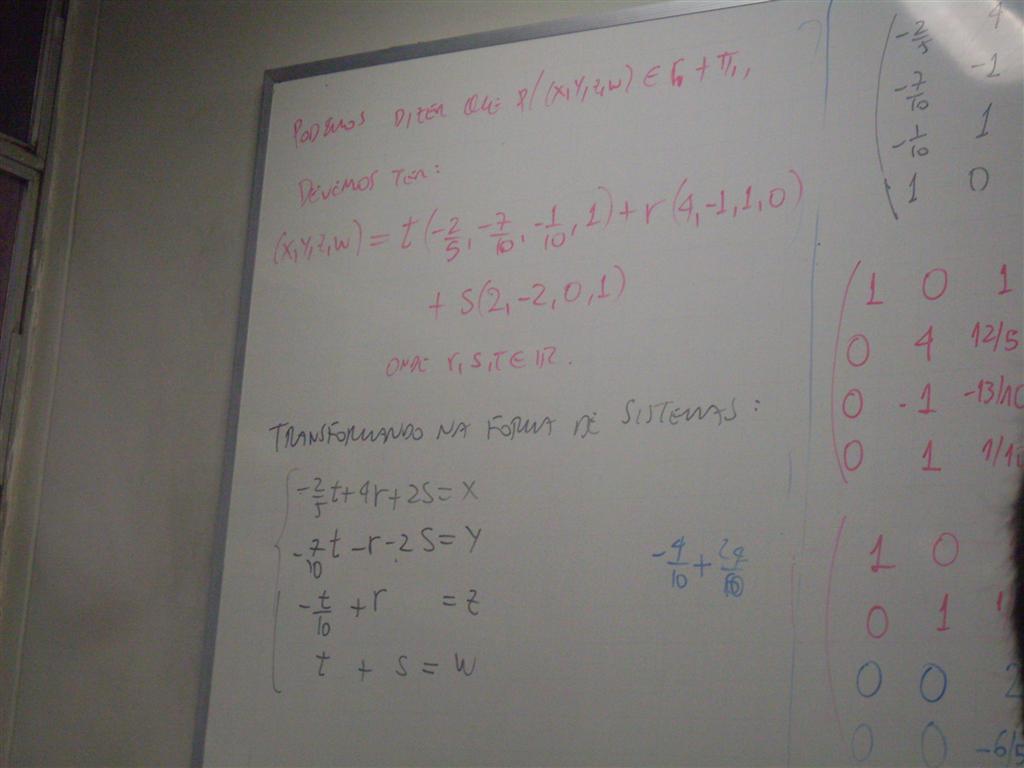 PODEMOS DIZER QUE P/ (X,Y,Z,W) ∈ r₀ + π₁,
DEVEMOS TER:
(X,Y,Z,W) = t(-2/5, -7/10, -1/10, 1) + r(4,-1,1,0)
+ S(2,-2,0,1)
ONDE r, s, t ∈ IR.
TRANSFORMANDO NA FORMA DE SISTEMAS:
-2/5 t + 4r + 2S = X
-7/10 t - r - 2S = Y
-t/10 + r = Z
t + s = W
-4/10 + 24/10
-2/5 4
-7/10 -1
-1/10 1
1 0
1 0 1
0 4 12/5
0 -1 -13/10
0 1 1/1
1 0
0 1
0 0 2
0 0 -6/5